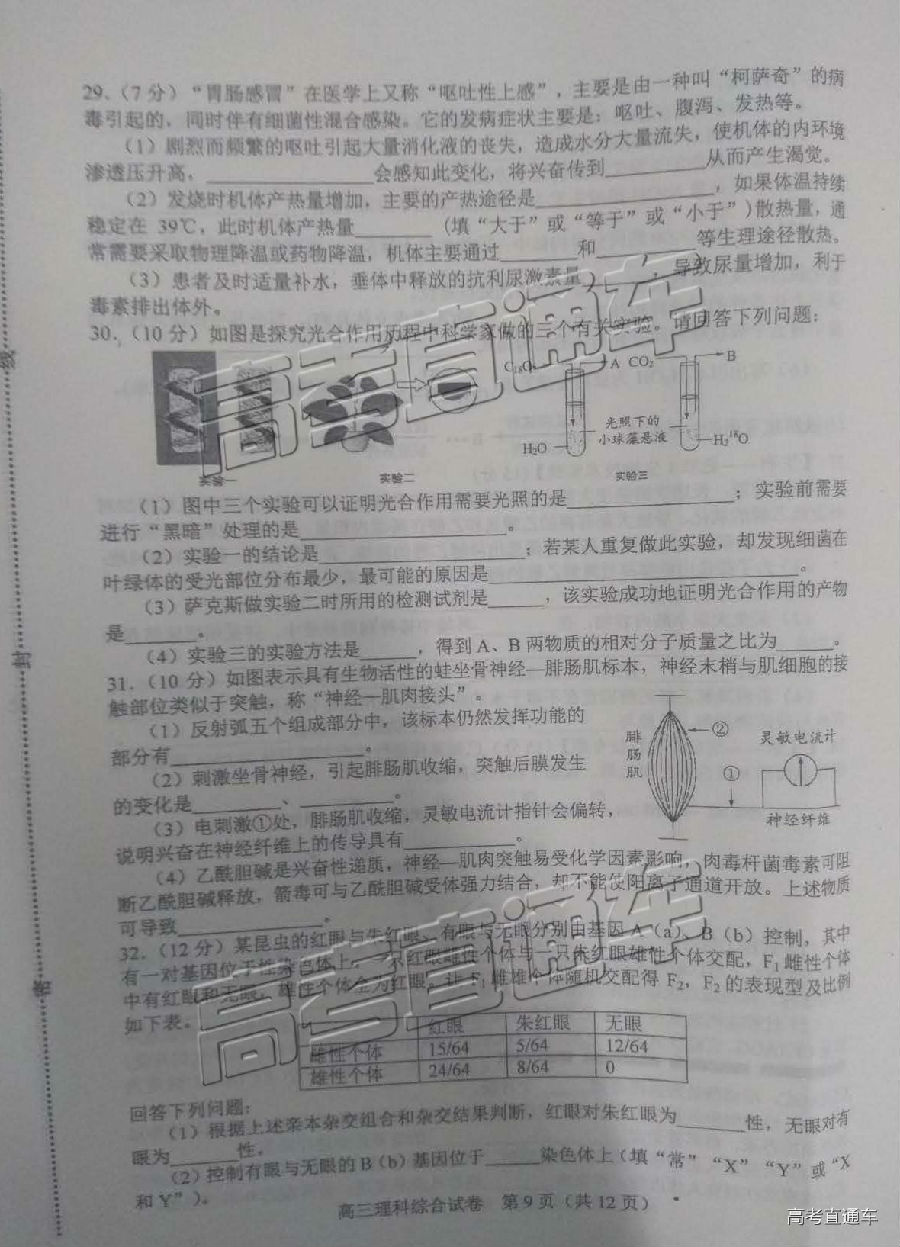 29.（7分）“胃肠感冒”在医学上又称“呕吐性上感”，主要是由一种叫“柯萨奇”的病
毒引起的，同时伴有细菌性混合感染。它的发病症状主要是：呕吐、腹泻、发热等。
（1）剧烈而频繁的呕吐引起大量消化液的丧失，造成水分大量流失，使机体的内环境
渗透压升高，________会感知此变化，将兴奋传到________从而产生渴觉。
（2）发烧时机体产热量增加，主要的产热途径是________，如果体温持续
稳定在 39℃，此时机体产热量________（填“大于”或“等于”或“小于”）散热量，通
常需要采取物理降温或药物降温，机体主要通过________和________等生理途径散热。
（3）患者及时适量补水，垂体中释放的抗利尿激素量________，导致尿量增加，利于
毒素排出体外。
30.（10分）如图是探究光合作用历程中科学家做的三个有关实验。请回答下列问题：
A CO₂ B
光照下的
小球藻悬液
H₂O H₂¹⁸O
实验一 实验二 实验三
（1）图中三个实验可以证明光合作用需要光照的是________；实验前需要
进行“黑暗”处理的是________。
（2）实验一的结论是________；若某人重复做此实验，却发现细菌在
叶绿体的受光部位分布最少，最可能的原因是________。
（3）萨克斯做实验二时所用的检测试剂是______，该实验成功地证明光合作用的产物
是______。
（4）实验三的实验方法是______，得到 A、B 两物质的相对分子质量之比为______。
31.（10分）如图表示具有生物活性的蛙坐骨神经—腓肠肌标本，神经末梢与肌细胞的接
触部位类似于突触，称“神经—肌肉接头”。
（1）反射弧五个组成部分中，该标本仍然发挥功能的
部分有________。
（2）刺激坐骨神经，引起腓肠肌收缩，突触后膜发生
的变化是________、________。
（3）电刺激①处，腓肠肌收缩，灵敏电流计指针会偏转，
说明兴奋在神经纤维上的传导具有________。
腓肠肌 ② ① 灵敏电流计
神经纤维
（4）乙酰胆碱是兴奋性递质，神经—肌肉突触易受化学因素影响，肉毒杆菌毒素可阻
断乙酰胆碱释放，箭毒可与乙酰胆碱受体强力结合，却不能使阳离子通道开放。上述物质
可导致________。
32.（12分）某昆虫的红眼与朱红眼、有眼与无眼分别由基因 A（a）、B（b）控制，其中
有一对基因位于性染色体上，一只红眼雌性个体与一只朱红眼雄性个体交配，F₁ 雌性个体
中有红眼和无眼，雄性个体全为红眼。让 F₁ 雌雄个体随机交配得 F₂，F₂ 的表现型及比例
如下表。
红眼 朱红眼 无眼
雌性个体 15/64 5/64 12/64
雄性个体 24/64 8/64 0
回答下列问题：
（1）根据上述亲本杂交组合和杂交结果判断，红眼对朱红眼为______性，无眼对有
眼为______性。
（2）控制有眼与无眼的 B（b）基因位于______染色体上（填“常”“X”“Y”或“X
和 Y”）。
高三理科综合试卷 第 9 页（共 12 页）
高考直通车
高考直通车
高考直通车
封